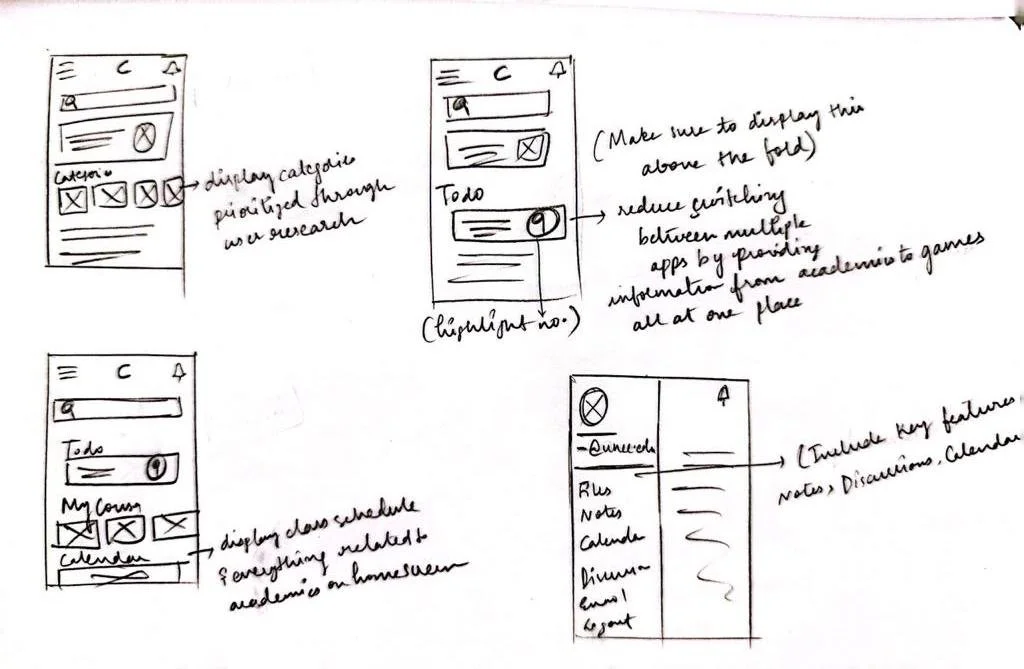 C
Categories
display categories
prioritized through
user research
C
9
Todo
9
(highlight no.)
(Make sure to display this
above the fold)
reduce switching
between multiple
apps by providing
information from academics to games
all at one place
C
Todo
9
My Courses
Calendar
display class schedule
& everything related to
academics on homescreen
Files
Notes
Calendar
Discussion
Enrol
Logout
(Include key features,
Notes, Discussions, Calendar